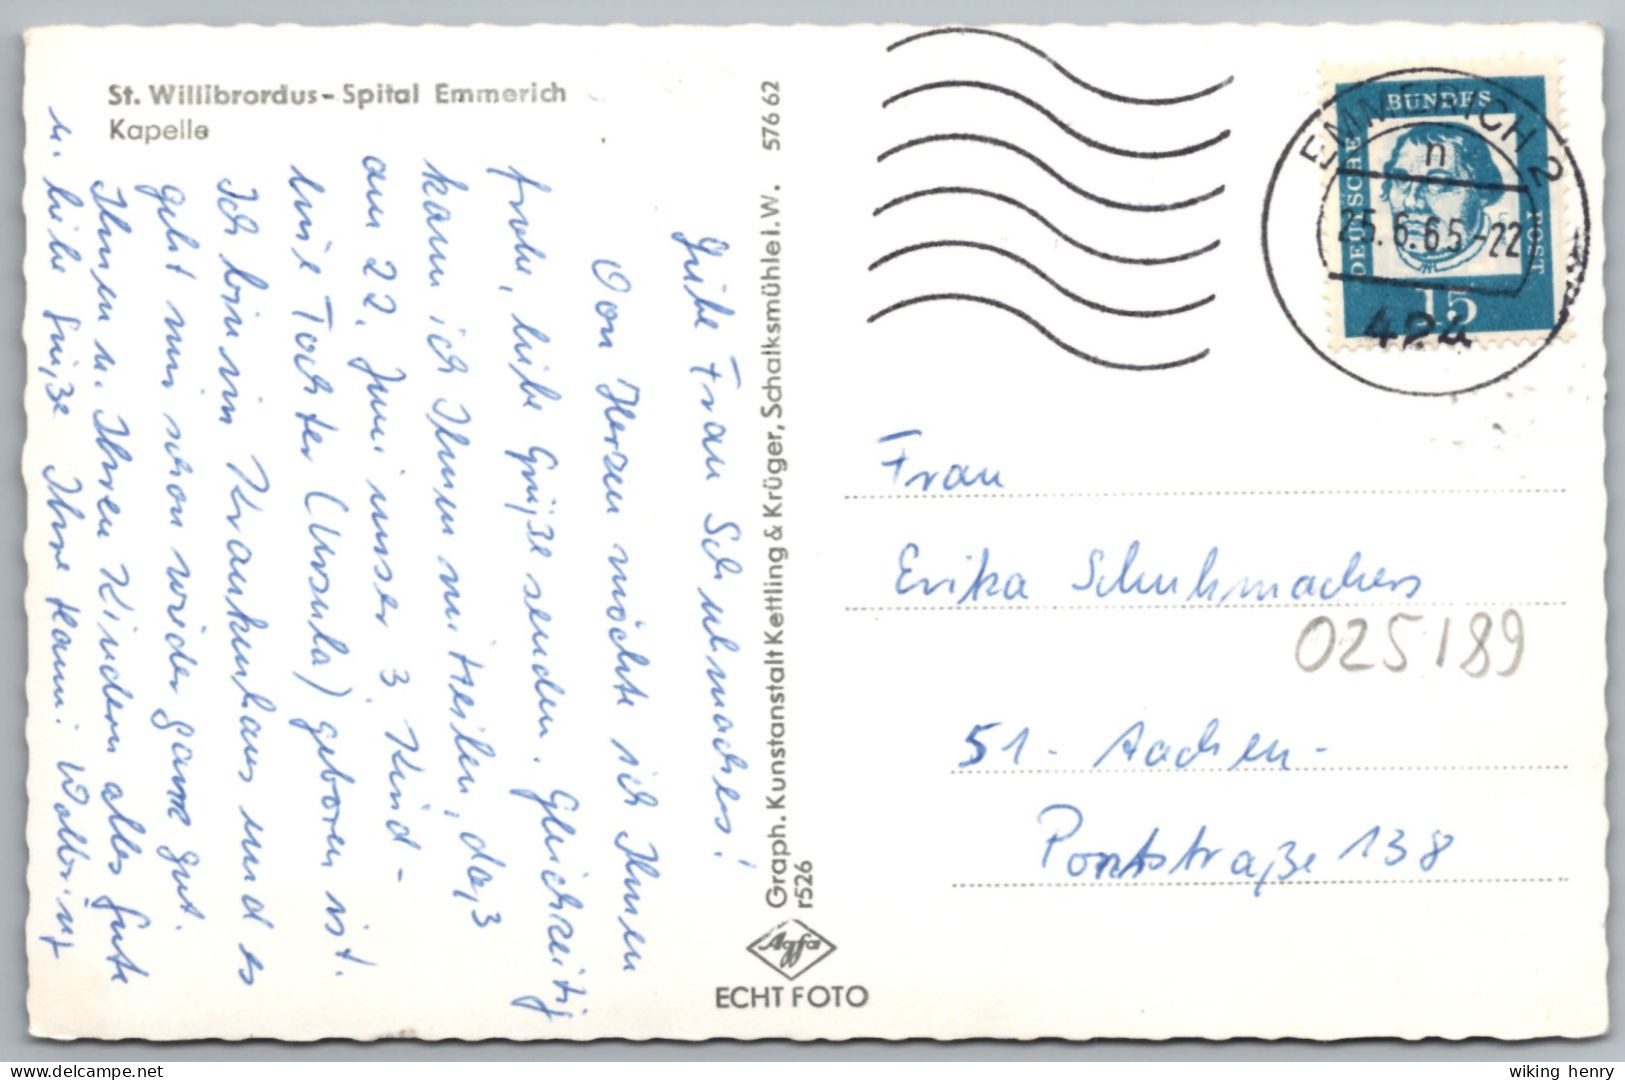 St. Willibrordus-Spital Emmerich
Kapelle
Liebe Frau Schuhmachers!
Von Herzen möchte ich Ihnen
frohe, liebe Grüße senden. Gleichzeitig
kann ich Ihnen mitteilen, daß
am 22. Juni unser 3. Kind -
eine Tochter (Ursula) geboren ist.
Ich bin im Krankenhaus und es
geht mir schon wieder ganz gut.
Ihnen u. Ihren Kindern alles Gute
u. liebe Grüße Ihre Hanni
57662
Graph. Kunstanstalt Kettling & Krüger, Schalksmühle i. W.
r526
Agfa
ECHT FOTO
DEUTSCHE
BUNDES
POST
15
EMMERICH 2
n
25.6.65-22
424
Frau
Erika Schuhmachers
025189
51- Aachen-
Pontstraße 138
wiking henry